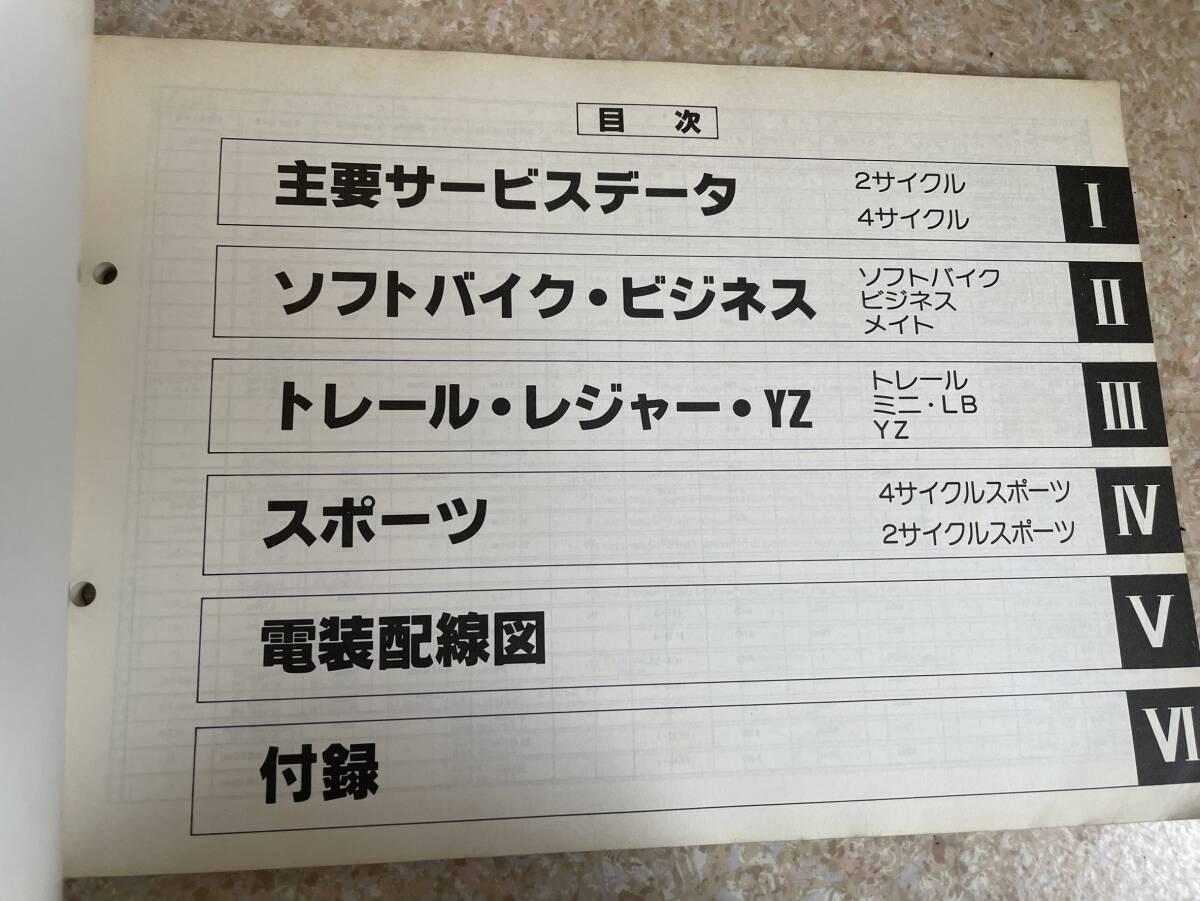 目 次
主要サービスデータ
2サイクル
4サイクル
I
ソフトバイク・ビジネス
ソフトバイク
ビジネス
メイト
II
トレール・レジャー・YZ
トレール
ミニ・LB
YZ
III
スポーツ
4サイクルスポーツ
2サイクルスポーツ
IV
電装配線図
V
付録
VI